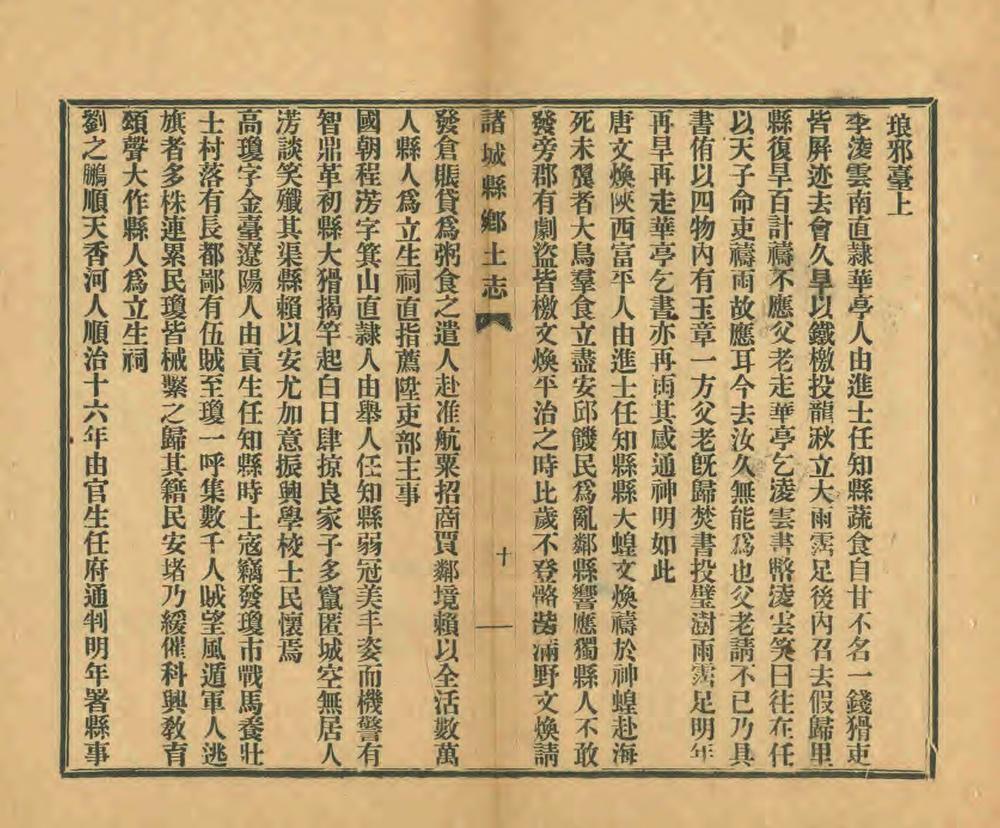 琅邪臺上
李淩雲南直隸華亭人由進士任知縣蔬食自甘不名一錢猾吏
皆屏迹去會久旱以鐵檄投龍湫立大雨霑足後內召去假歸里
縣復旱百計禱不應父老走華亭乞淩雲書幣淩雲笑曰往在任
以天子命吏禱雨故應耳今去汝久無能爲也父老請不已乃具
書侑以四物內有玉章一方父老旣歸焚書投璧澍雨霑足明年
再旱再走華亭乞書亦再雨其感通神明如此
唐文煥陝西富平人由進士任知縣縣大蝗文煥禱於神蝗赴海
死未翼者大鳥羣食立盡安邱饑民爲亂鄰縣響應獨縣人不敢
發旁郡有劇盜皆檄文煥平治之時比歲不登骼胔滿野文煥請
諸城縣鄉土志 十
發倉賑貸爲粥食之遣人赴淮航粟招商賈鄰境賴以全活數萬
人縣人爲立生祠直指薦陞吏部主事
國朝程淓字箕山直隸人由舉人任知縣弱冠美丰姿而機警有
智鼎革初縣大猾揭竿起白日肆掠良家子多竄匿城空無居人
淓談笑殲其渠縣賴以安尤加意振興學校士民懷焉
高瓊字金臺遼陽人由貢生任知縣時土寇竊發瓊市戰馬養壯
士村落有長都鄙有伍賊至瓊一呼集數千人賊望風遁軍人逃
旗者多株連累民瓊皆械繫之歸其籍民安堵乃緩催科興敎育
頌聲大作縣人爲立生祠
劉之鵬順天香河人順治十六年由官生任府通判明年署縣事